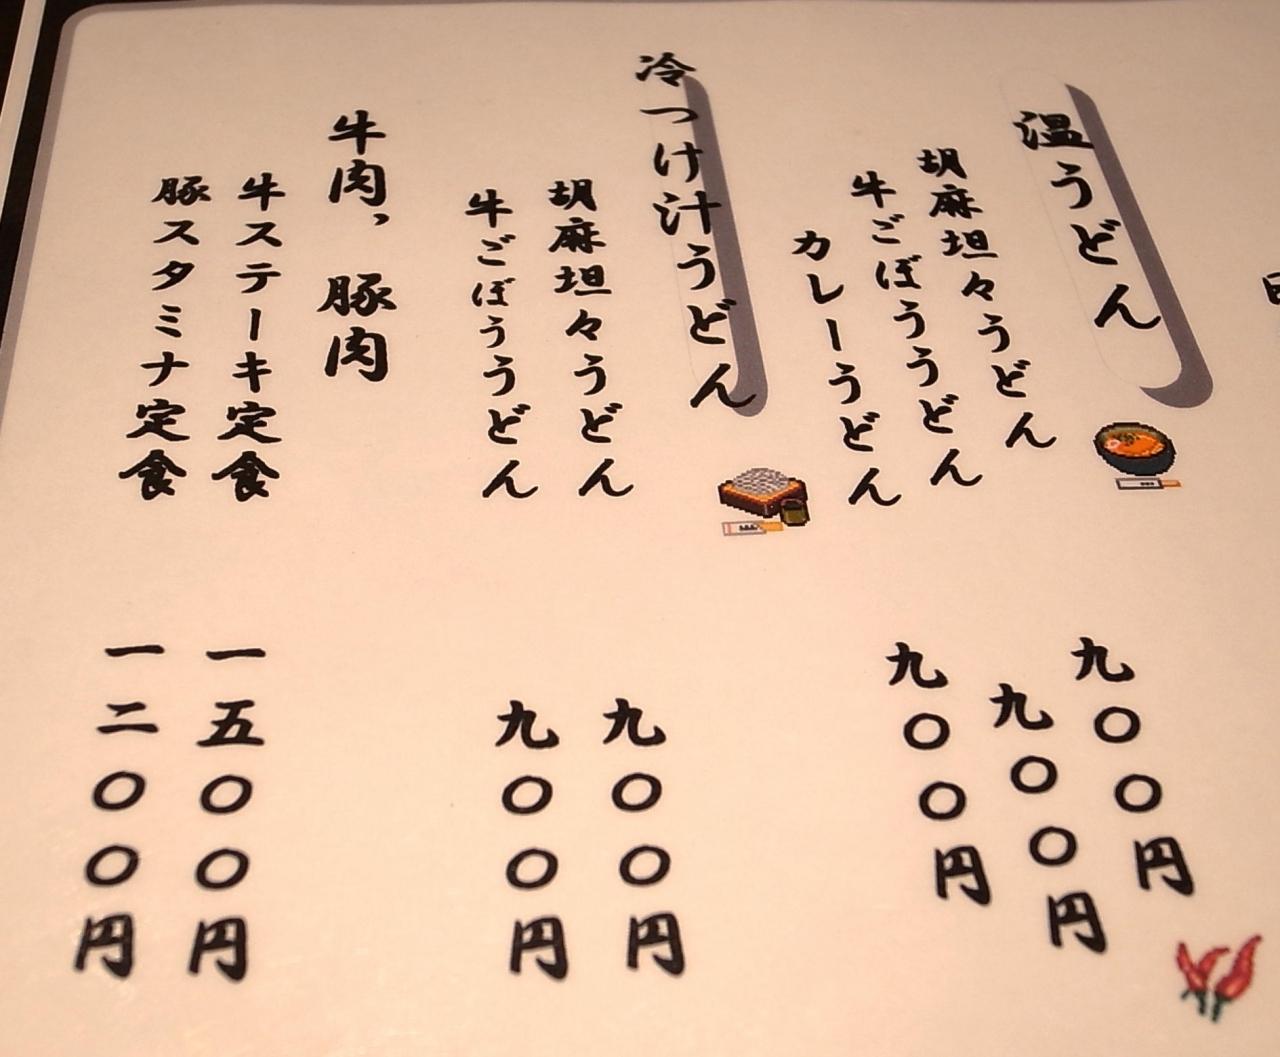 温うどん
胡麻坦々うどん
九〇〇円
牛ごぼううどん
九〇〇円
カレーうどん
九〇〇円
冷つけ汁うどん
胡麻坦々うどん
九〇〇円
牛ごぼううどん
九〇〇円
牛肉、豚肉
牛ステーキ定食
一五〇〇円
豚スタミナ定食
一二〇〇円